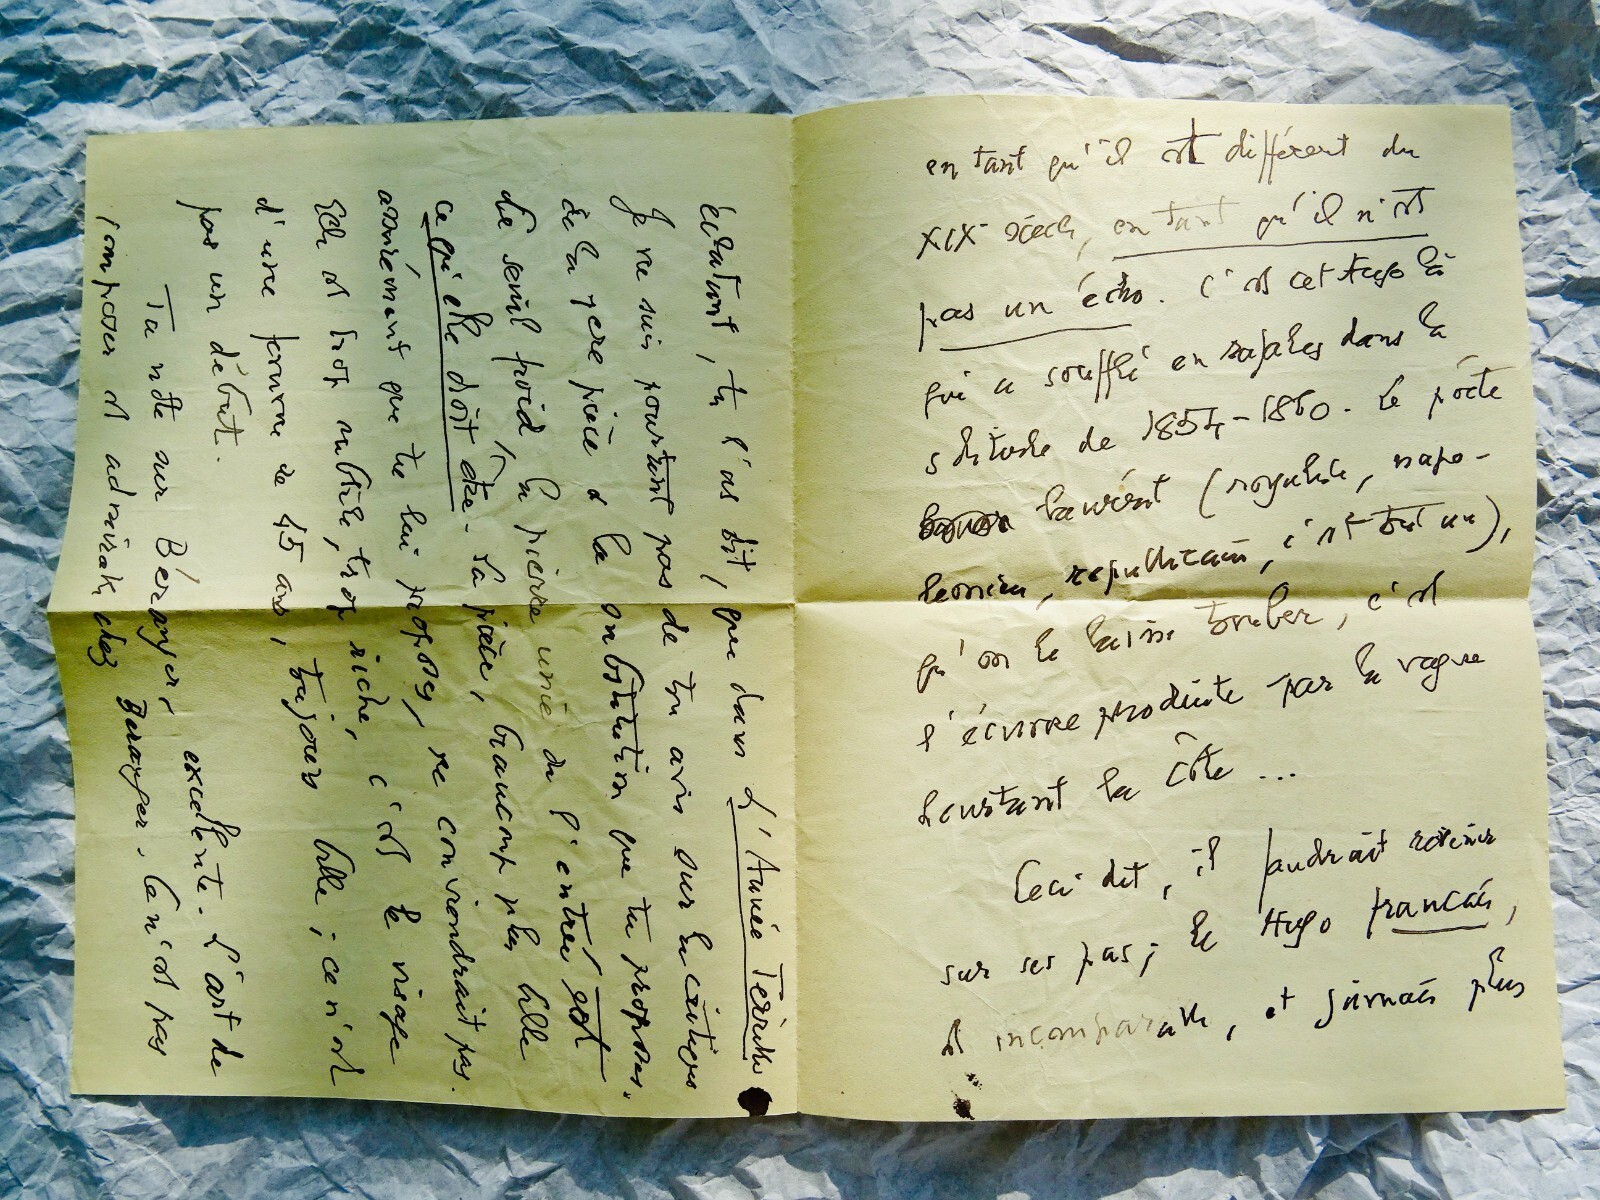 en tant qu'il est différent du
XIXe siècle, en tant qu'il n'est
pas un écho. C'est cet Hugo là
qui a soufflé en rafales dans la
solitude de 1854-1860. Le poète
lauréat (royaliste, napo-
léonien, républicain, c'est tout un),
qu'on le laisse tomber, c'est
l'écume produite par la vague
heurtant la côte ...
Ceci dit, il faudrait revenir
sur ses pas ; le Hugo français,
est incomparable, et jamais plus
éclatant, tu l'as dit, que dans L'Année Terrible
Je ne suis pourtant pas de ton avis sur la critique
de la 1ère pièce & la substitution que tu proposes.
Le seuil froid, la pierre unie de l'entrée est
ce qu'elle doit être. La pièce, beaucoup plus belle
assurément que tu lui proposes, ne conviendrait pas.
Elle est trop subtile, trop riche, c'est le visage
d'une femme de 45 ans, toujours belle ; ce n'est
pas un début.
Ta note sur Béranger, excellente. L'art de
composer est admirable chez Béranger. Ce n'est pas